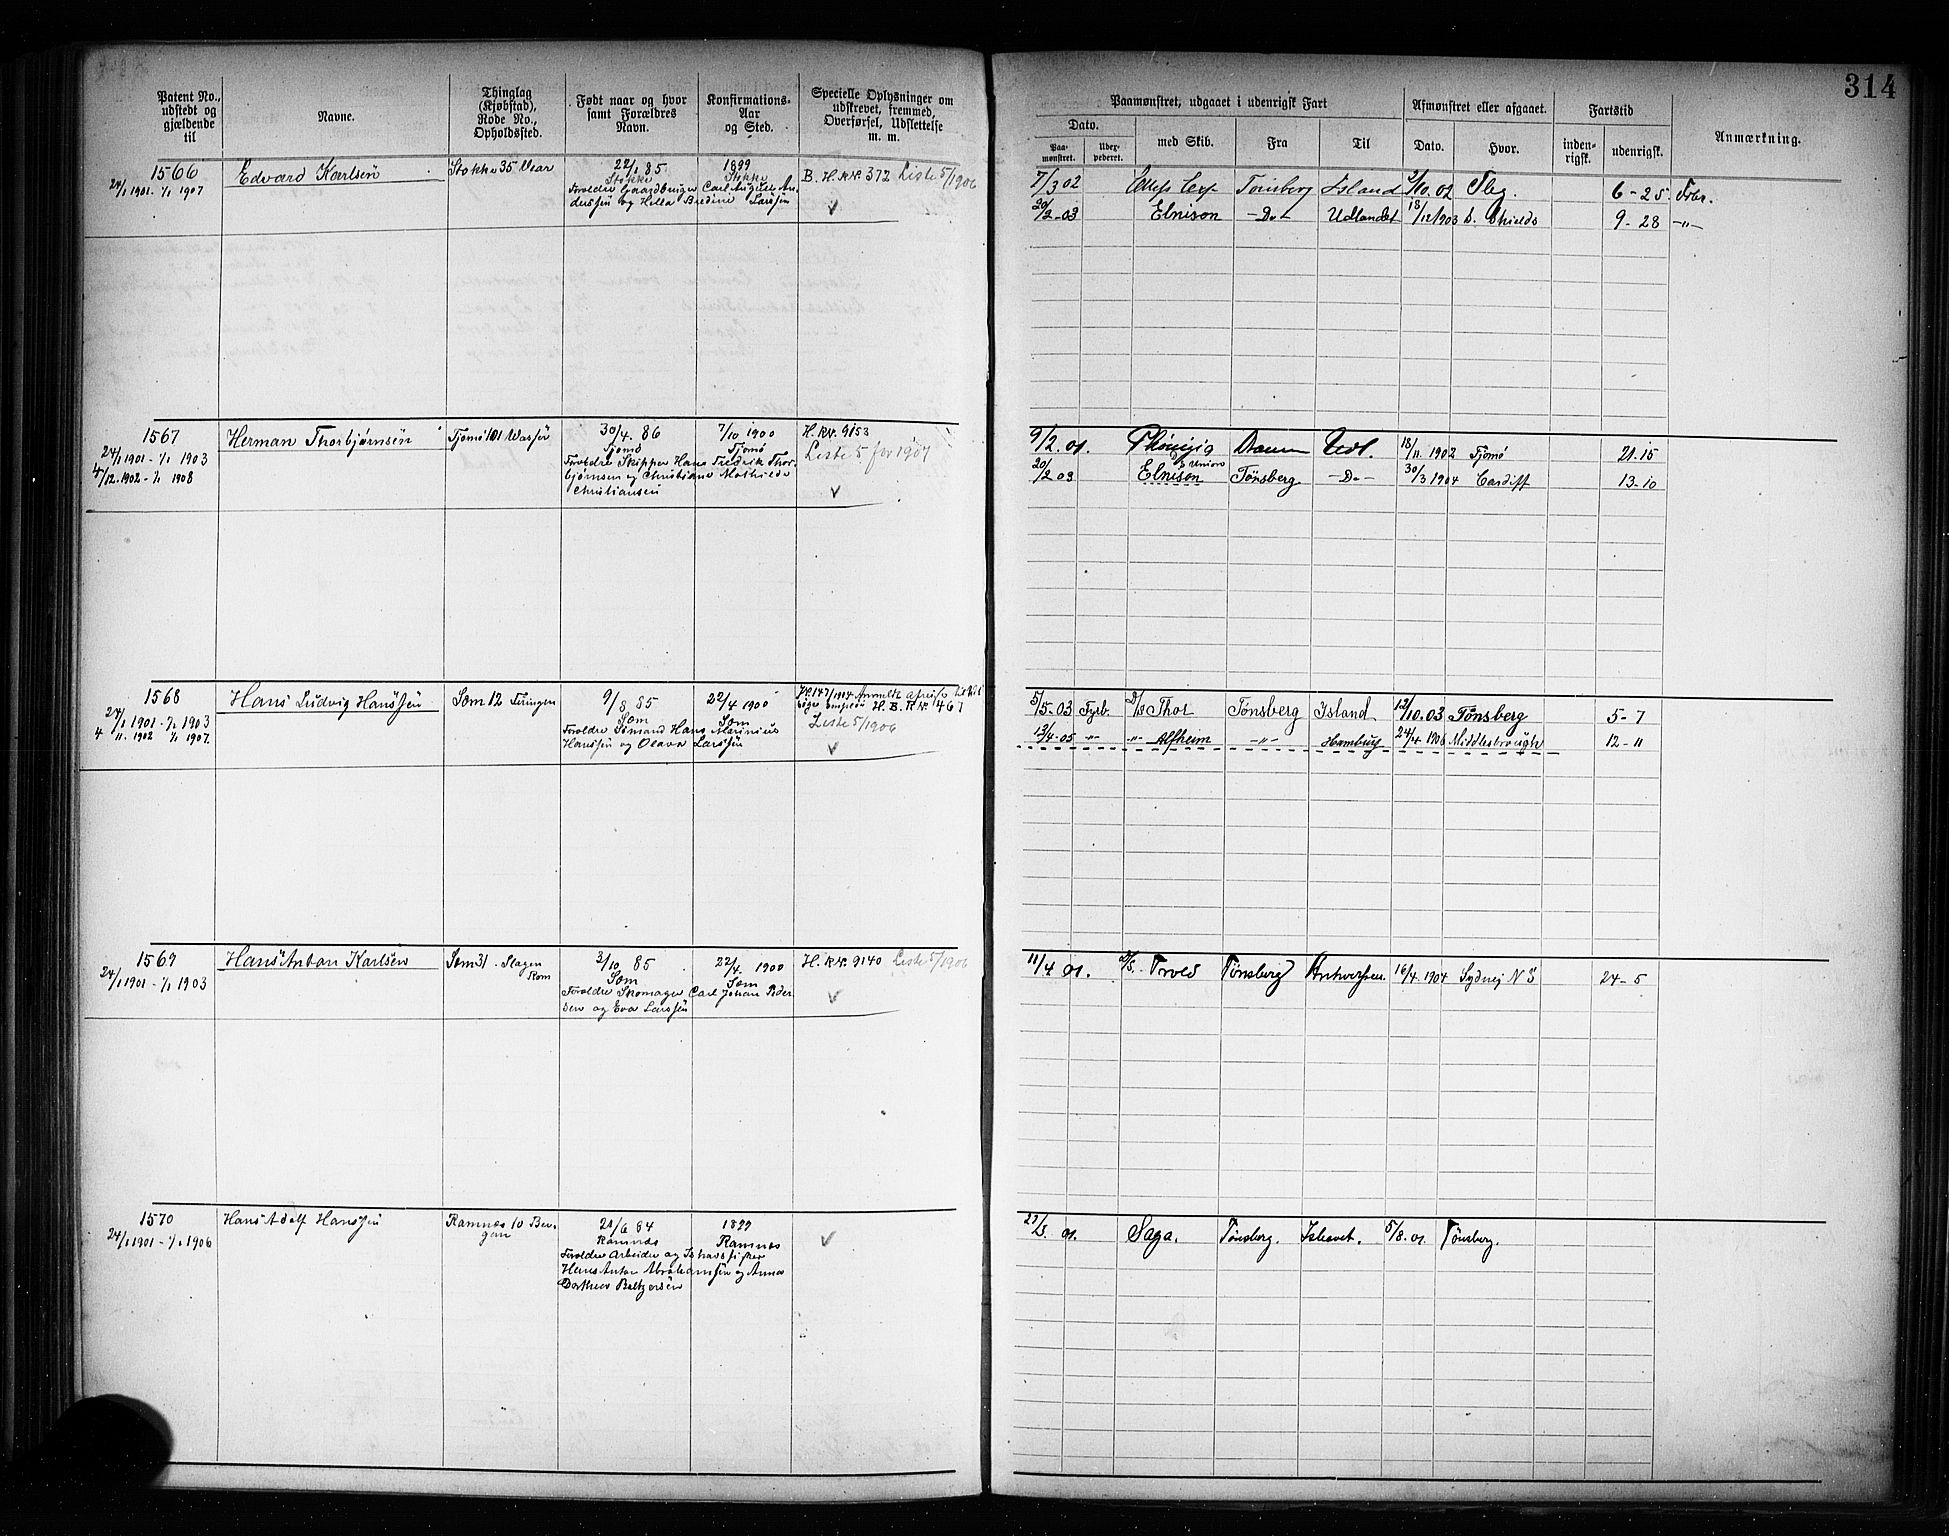 314
Patent No., udstedt og gjældende til
Navne.
Thinglag (Kjøbstad), Rode No., Opholdssted.
Født naar og hvor samt Forældres Navn.
Konfirmations-Aar og Sted.
Specielle Oplysninger om udskrevet, fremmed, Overførsel, Udslettelse m. m.
Paamønstret, udgaaet i udenrigsk Fart
Dato.
Paa-mønstret.
med Skib.
Fra
Til
Afmønstret eller afgaaet.
Dato.
Hvor.
Fartstid
inden-rigsk.
udenrigsk.
Anmærkning.
1566
24/1 1901 - 1/1 1907
Edvard Karlsen
Stokke 35 Vear
22/1 85
Stokke
1899
Stokke
Forældre Gaardbruger Carl August An-
derssen og Hella Bredine Larssen
B. H. RN. 372 Liste 5/1906
7/3 02
Tønsberg Island 2/10 02 Tbg. 6-25 Frbr.
20/2-03 Elnison -Do- Udlandet 18/12 1903 S. Shields 9-28 -"-
1567
24/1 1901 - 1/1 1903
4/12 1902 - 1/1 1908
Herman Thorbjørnsen
Tjømø 101
30/4. 86
Tjømø
7/10 1900
Tjømø
Forældre Skipper Hans Fredrik Thor-
bjørnsen og Christiane Mathilde
Christiansen
H. RN. 9153
Liste 5 for 1907
9/2. 01. Dramm Udl. 18/11 1902 Tjømø 21-15
20/2 03 Elnison Tønsberg -Do- 30/3 1904 Cardiff 13-10
1568
24/1 1901 - 1/1 1903
4/11. 1902 1/1 1907.
Hans Ludvig Hanssen
Sæm 12
9/8. 85
Sæm
22/4 1900
Sæm
Forældre Sømand Hans Marinius
Hanssen og Olava Larssen
H. B. RN. 467
Liste 5/1906
5/5-03 Tyrb. Thor Tønsberg Island 12/10. 03 Tønsberg 5-7
13/4-05 -"- "- Alfheim -"- Hamburg 24/4 1906 Middlesbrough 12-11
1569
24/1 1901 - 1/1 1903
Hans Anton Karlsen
Sæm 31. Slagen
Rom
3/10 85
Sæm
22/4. 1900
Sæm
Forældre Skomager Carl Johan Peder
sen og Eva Larssen
H. RN. 9140 Liste 5/1906
11/4 01. Tønsberg Antwerpen 16/4. 1904 Sydney N S 24-5
1570
24/1 1901 - 1/1 1906
Hans Adolf Hanssen
Ramnæs 10 Ber-
gan
21/6 84
Ramnæs
1899
Ramnæs
Forældre Arbeider og Ishavsfisker
Hans Anton Abrahamssen og Anna
Dorthea Baltzersen
Saga. Tønsberg. Ishavet. 5/8. 01. Tønsberg.